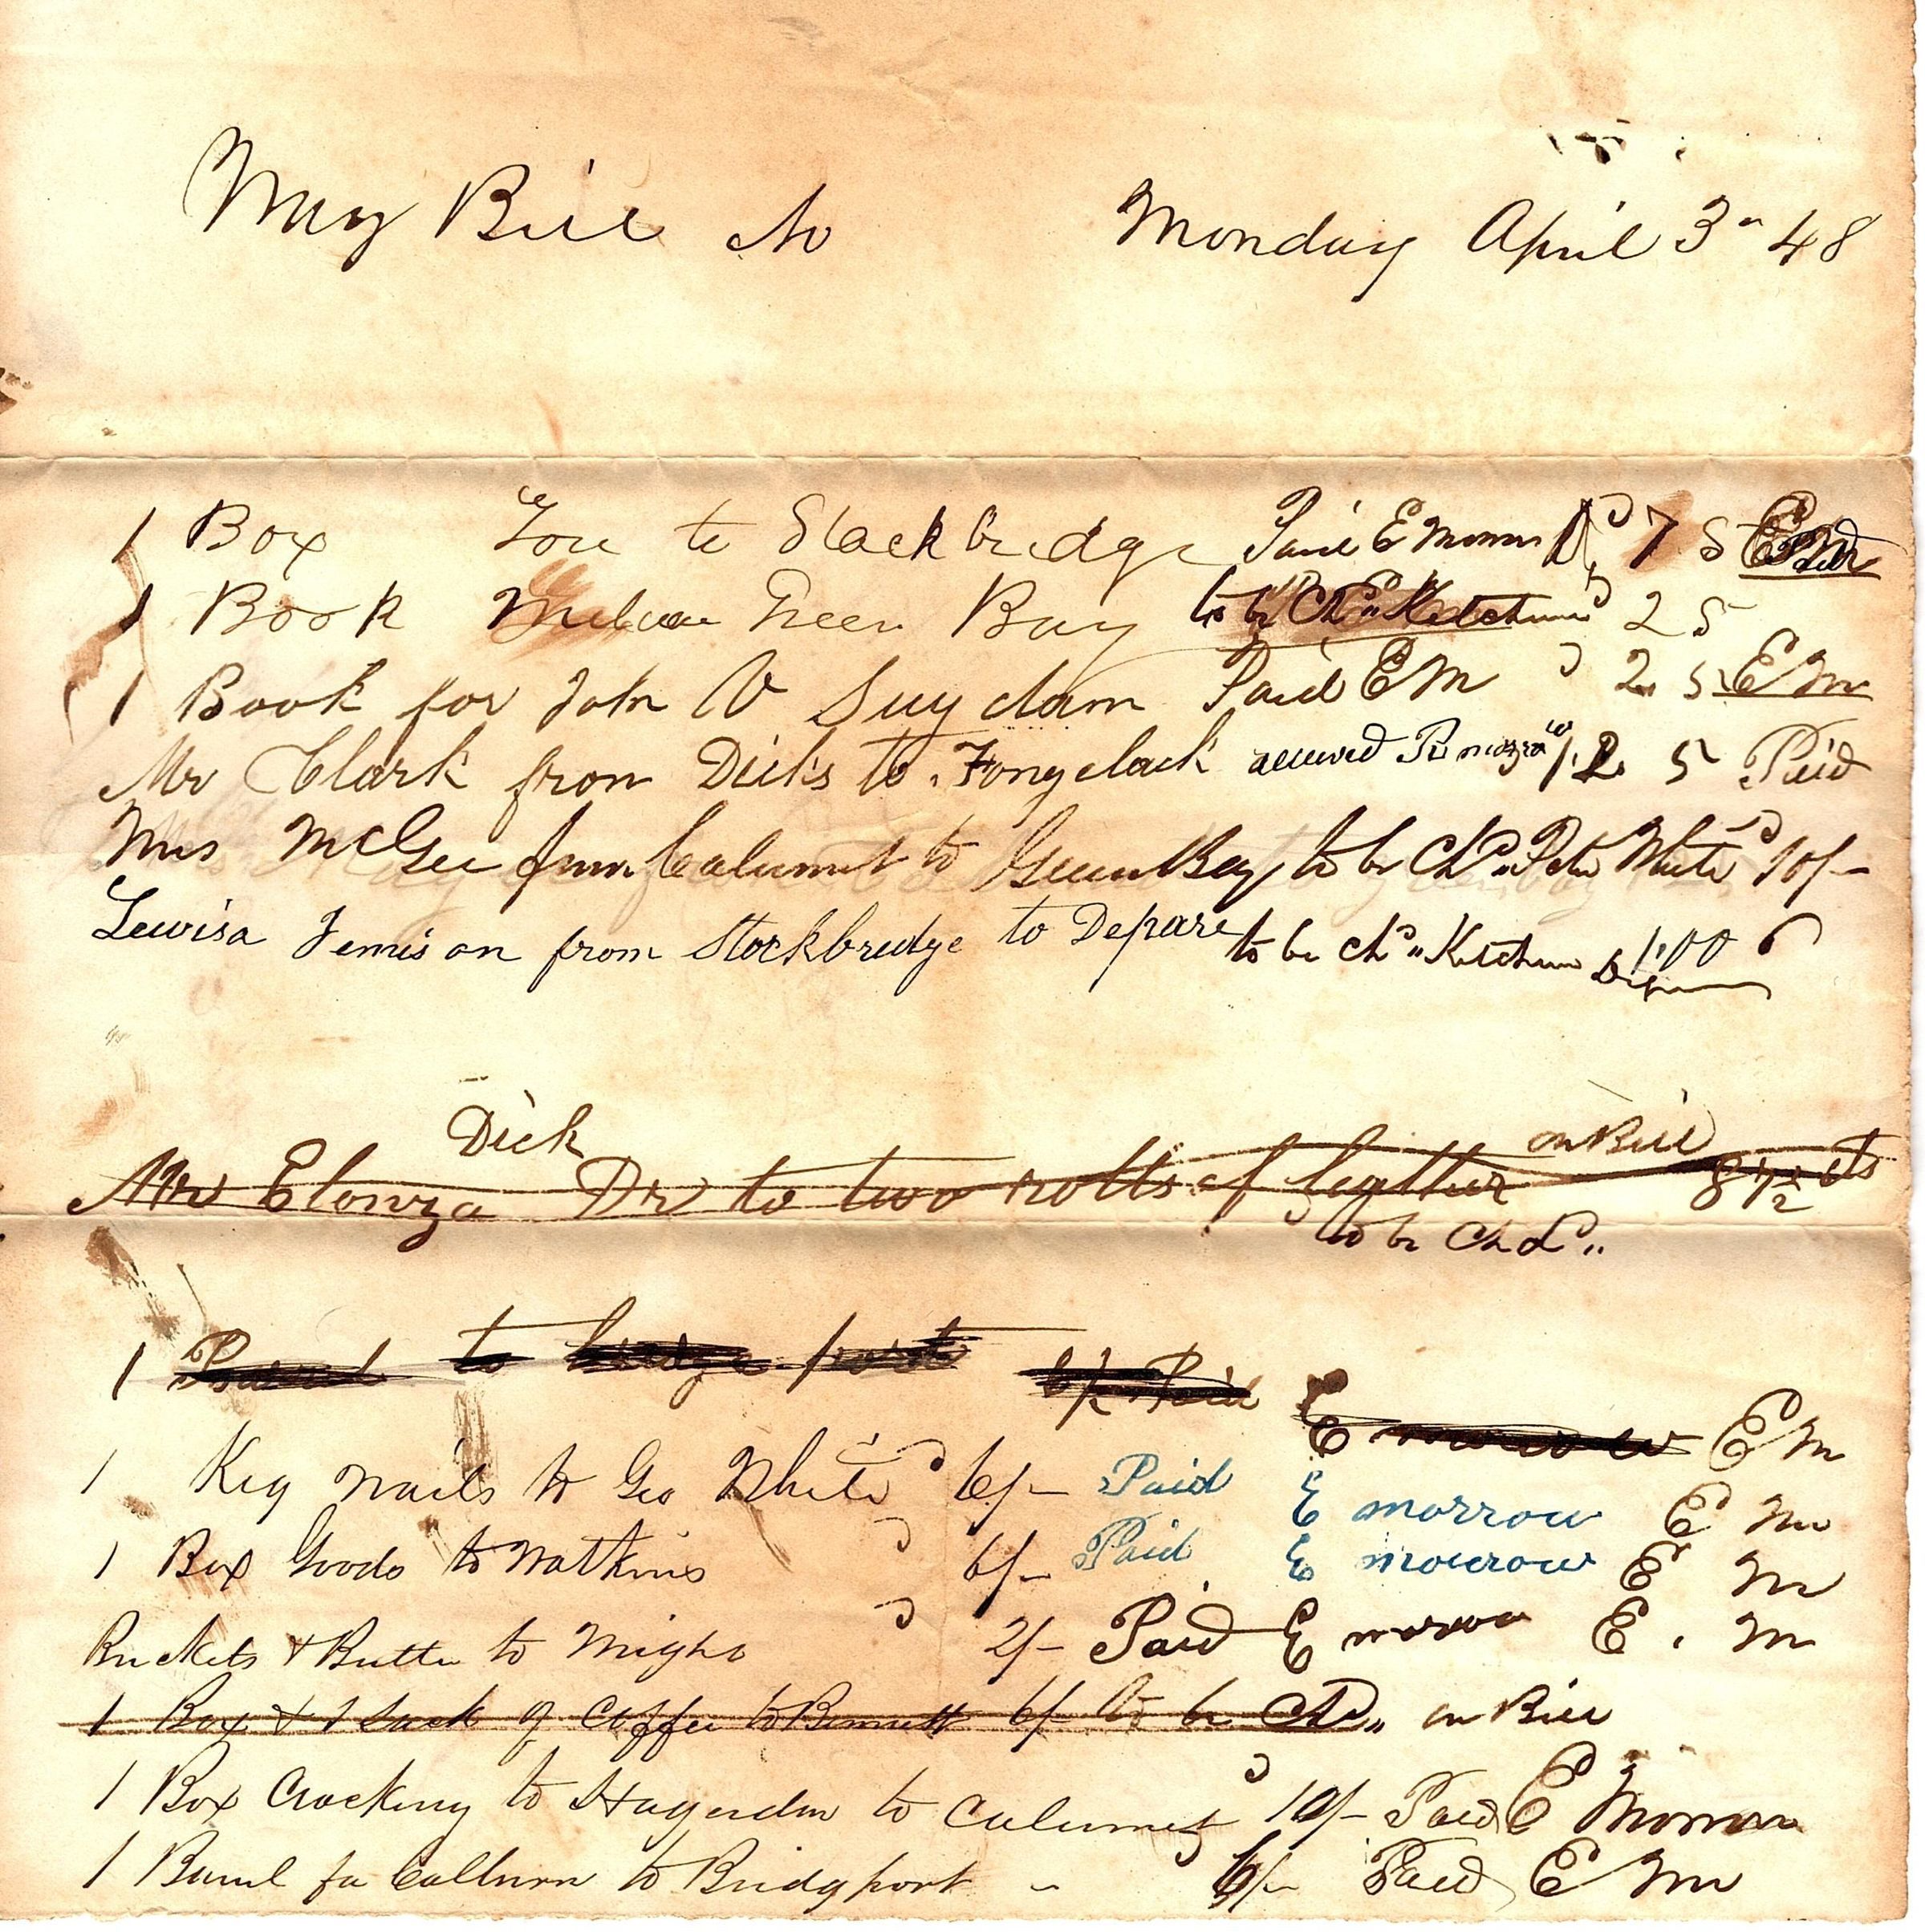 Way Bill No Monday April 3" 48
1 Box to Stockbridge Paid E Morrow 75 EM
1 Book Green Bay to be Chd" Ketchum 25
1 Book for John V Suydam Paid EM 25 EM
Mr Clark from Dicks to Fongclack 5 Paid
Mrs McGee from Calumet to Green Bay to be Chd" White 10/-
Lewisa Jemison from Stockbridge to Depare to be Chd" Ketchum 1.00
Dick on Bill
Mr Elonza Dr to two rolls of legther 87 1/2 cts
to be Chd"
1 Barrel to bridge port 6/- Paid
E Morrow EM
1 Keg nails to Geo White 6/- Paid E morrow E M
1 Box Goods to Watkins 6/- Paid E morrow E M
Buckets & Butter to Wight 2/- Paid E morrow E. M
1 Box & 1 Sack of Coffee to Bennett 6/- to be Chd" on Bill
1 Box Crockery to to Calumet 10/- Paid E Morrow
1 Barrel for Calhurn to Bridgport - 6/- Paid E M